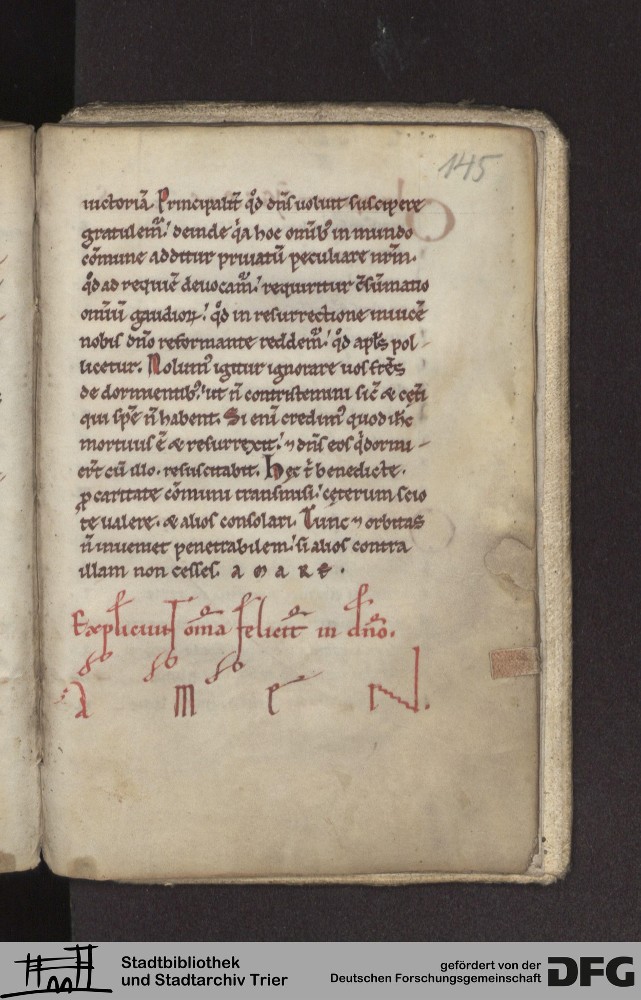 145
uictoriā. Principalit̄ qd̄ dn̄s uoluit suscipere
gratulem̄. deinde q̇a hoc omīb; in mundo
cōmune additur priuatū peculiare nr̄m.
qd̄ ad requiē deuocam̄. requiritur c̄sūmatio
omniū gaudioꝝ. qd̄ in resurrectione inuicē
nobis dn̄o reformante reddem̄. qd̄ apl̄s pol
licetur. Nolum᷒ igitur ignorare uos fr̄s
de dormientib;. ut n̄ contristemini sic̄ & cęt̄i
qui spē n̄ habent. Si enī credim᷒ quod ih̄c
mortuus ē & resurrexit. ⁊ dn̄s eos q̇ dormi
er̄t cū illo. resuscitabit. Hęc t̄ benedicte.
ꝓ caritate cōmuni transmisi. cęterum scio
te ualere. & alios consolari. Tunc ⁊ orbitas
n̄ inueniet penetrabilem. si alios contra
illam non cesses. AMARE.
Expliciunt om̄a felicit̄ in dn̄o.
AMEN.
Stadtbibliothek
und Stadtarchiv Trier
gefördert von der
Deutschen Forschungsgemeinschaft
DFG